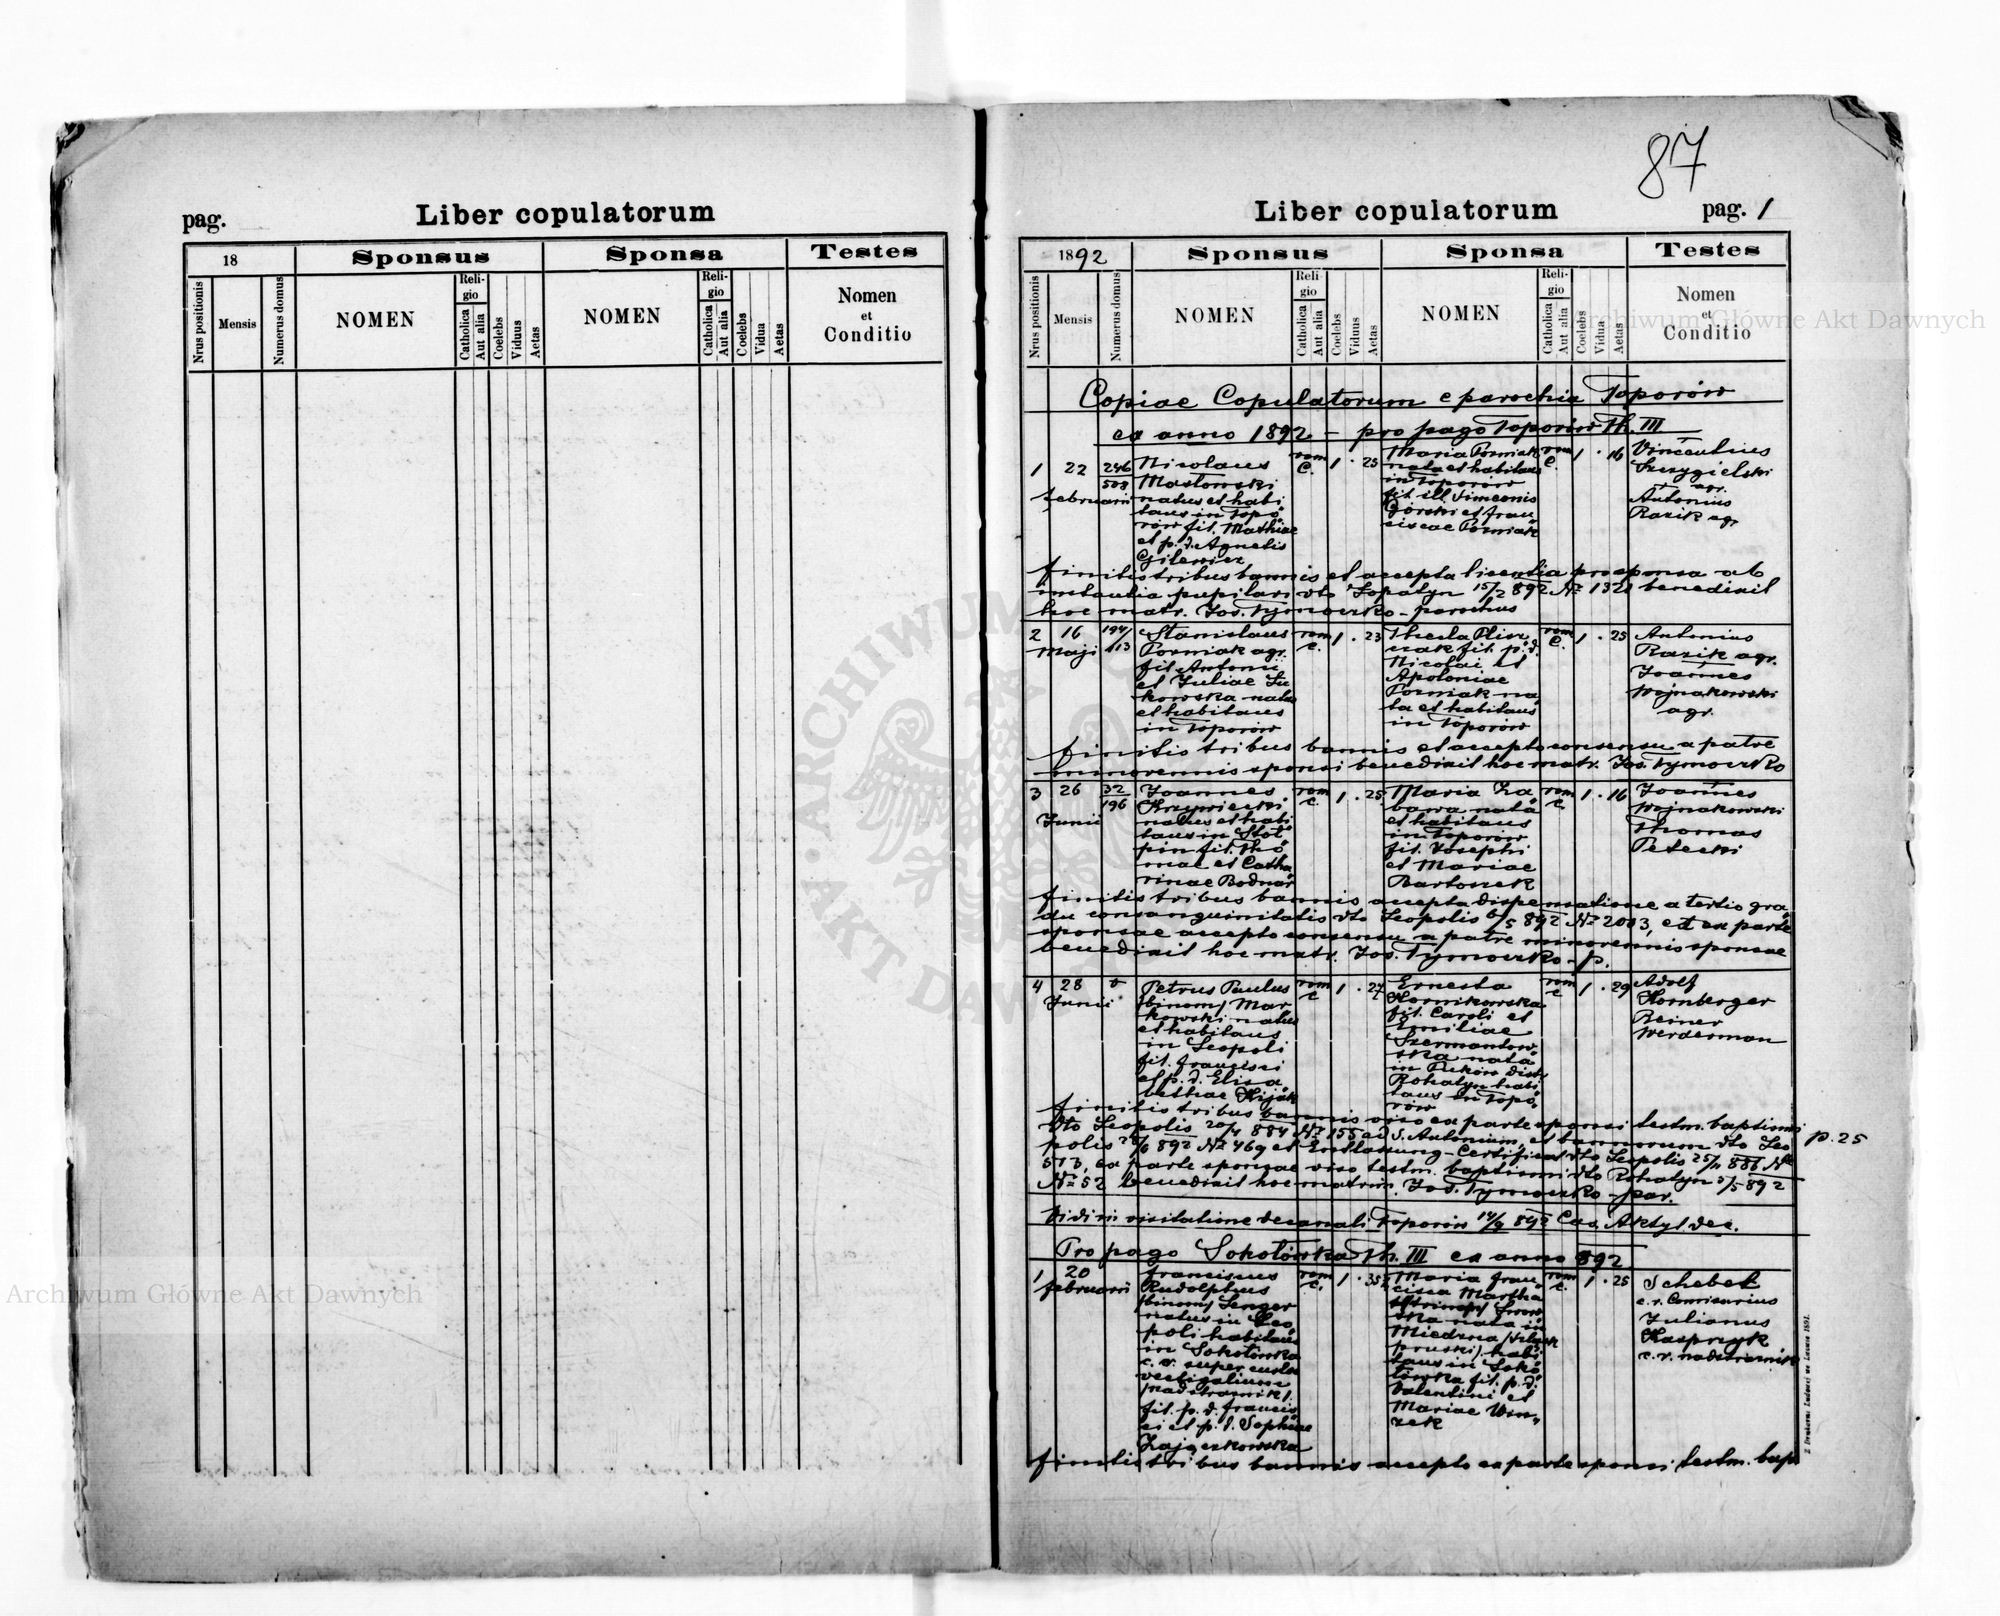 87
pag.
Liber copulatorum
18
Sponsus
Sponsa
Testes
Nrus positionis
Mensis
Numerus domus
NOMEN
Religio
Catholica
Aut alia
Coelebs
Viduus
Aetas
NOMEN
Religio
Catholica
Aut alia
Coelebs
Vidua
Aetas
Nomen
et
Conditio
Liber copulatorum
pag. 1
1892
Sponsus
Sponsa
Testes
Nrus positionis
Mensis
Numerus domus
NOMEN
Religio
Catholica
Aut alia
Coelebs
Viduus
Aetas
NOMEN
Religio
Catholica
Aut alia
Coelebs
Vidua
Aetas
Nomen
et
Conditio
Copiae Copulatorum e parochia Toporów
ex anno 1892 – pro pago Toporów Th. III
1
22
februarii
246
508
Nicolaus
Masłowski
natus et habi
tans in Topo
rów fil. Mathiae
et p. d. Agnetis
rom
C.
1 . 25
Maria Pozniak
nata et habitans
in Toporów
fil. ill. Simeonis
Górski et fran
ciscae Pozniak
rom
C.
1 . 16
Vincentius
Szczygielski
agr.
Antonius
Razik agr.
finitis tribus bannis et accepta licentia pro sponsa ab
instantia pupilari dto Łopatyn 15/2 892 № 1321 benedixit
hoc matr. Jos. Tymoczko – parochus
2
16
Maji
194/
113
Stanislaus
Pozniak agr.
fil. Antonii
et Juliae Żu
kowska natus
et habitans
in Toporów
rom
c.
1 . 23
Thecla
fil. p. d.
Nicolai et
Apoloniae
Pozniak na
ta et habitans
in Toporów
rom
C.
1 . 25
Antonius
Razik agr.
Joannes
Wojnakowski
agr.
finitis tribus bannis et accepto consensu a patre
minorennis sponsi benedixit hoc matr. Jos. Tymoczko
3
26
Junii
32
196
Joannes
Krzywiecki
natus et habi
tans in Stoł
pin fil. Tho
mae et Catha
rinae Bodnar
rom
c.
1 . 25
Maria Za
bawa nata
et habitans
in Toporów
fil. Josephi
et Mariae
Bartoszek
rom
c.
1 . 16
Joannes
Wojnakowski
Thomas
Petecki
finitis tribus bannis accepta dispensatione a tertio gra
du consanguinitatis dto Leopolis 6/5 892 № 2003, et ex parte
sponsae accepto consensu a patre minorennis sponsae
benedixit hoc matr. Jos. Tymoczko – p.
4
28
Junii
Petrus Paulus
/binom/ Mar
kowski natus
et habitans
in Leopoli
fil. francisci
et p. d. Elisa
bethae Kijak
rom
c
1 . 27
Ernesta
Kornikowska
fil. Caroli et
Emiliae
Szermantow
ska nata
in Puków distr.
Rohatyn habi
tans in Topo
rów
rom
c
1 . 29
Adolf
Kornberger
Reiner
Werdesman
finitis tribus bannis viso ex parte sponsi testm. baptismi
dto Leopolis 20/4 884 № 155 ad S. Antonium, et bannorum dto Leo
p. 25
polis 28/6 892 № 469 et Entlassung-Certificat dto Leopolis 25/11 886 №
513, ex parte sponsae viso testm. baptismi dto Rohatyn 3/5 892
№ 52 benedixit hoc matrim. Jos. Tymoczko – par.
Vidi in visitatione decanali Toporów 14/9 892 Cas. Aktyl dec.
Pro pago Sokołówka Th. III ex anno 892
1
20
februarii
franciscus
Rudolphus
/binom/ Senger
natus in Leo
poli habitans
in Sokołówka
c. r. super custos
vectigalium
/nadstrażnik/.
fil. p. d. francis
ci et p. d. Sophiae
Zajączkowska
rom
c.
1 . 35
Maria fran
cisca Martha
/trinom/
ska nata in
Miedzna
pruski/, habi
tans in Soko
łówka fil. p. d.
Valentini et
Mariae Win
zek
rom
c.
1 . 25
Schebek
c. r. Comisarius
Julianus
Kasprzyk
c. r. nadstrażnik
finitis tribus bannis accepto ex parte sponsi testm. bap.
Z Drukarni Ludowej we Lwowie 1891.
Archiwum Główne Akt Dawnych
Archiwum Główne Akt Dawnych
ARCHIWUM
AKT DAWNYCH